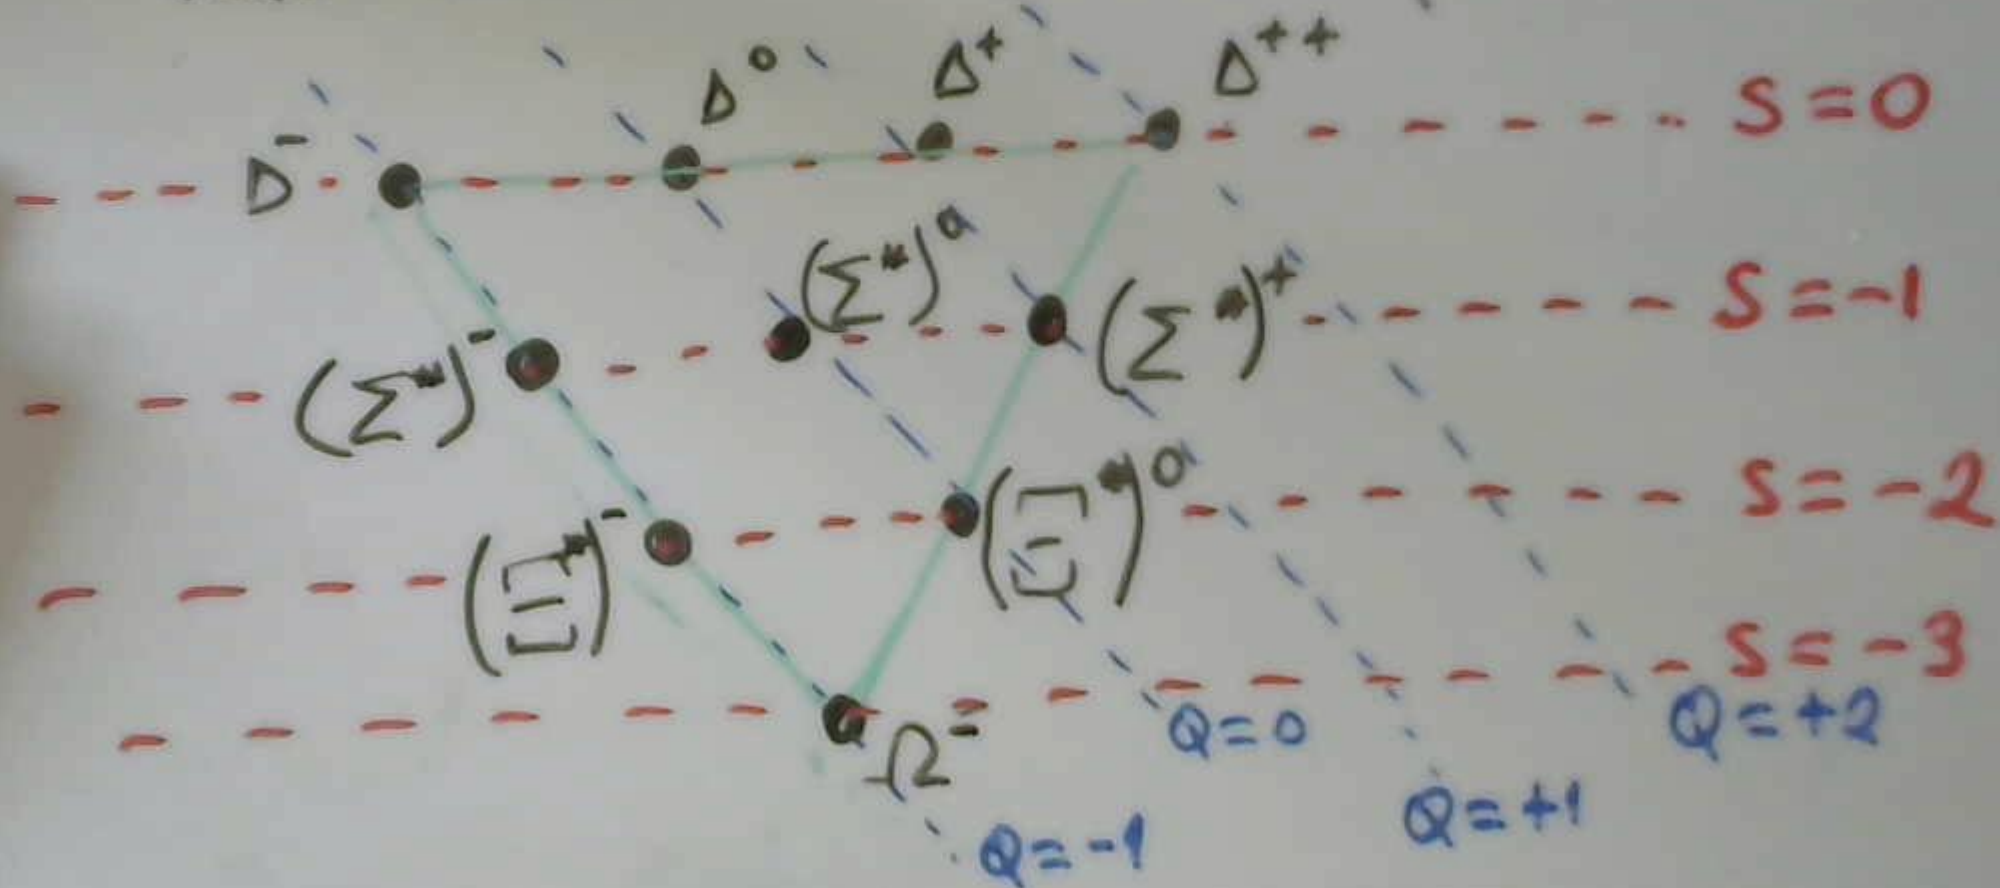 Δ⁻ Δ⁰ Δ⁺ Δ⁺⁺ S=0
(Σ*)⁻ (Σ*)⁰ (Σ*)⁺ S=-1
(Ξ*)⁻ (Ξ*)⁰ S=-2
Ω⁻ S=-3
Q=-1 Q=0 Q=+1 Q=+2